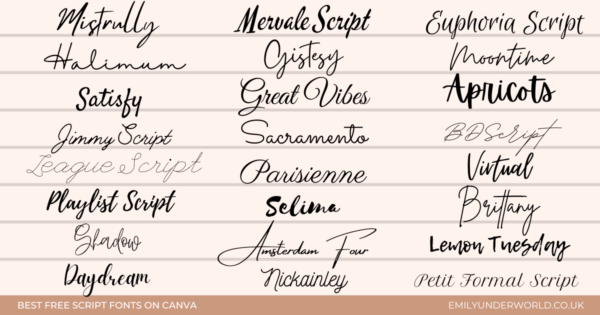 Mistrully
Mervale Script
Euphoria Script
Halimum
Gistesy
Moontime
Satisfy
Great Vibes
Apricots
Jimmy Script
Sacramento
BDScript
League Script
Parisienne
Virtual
Playlist Script
Selima
Brittany
Shadow
Amsterdam Four
Lemon Tuesday
Daydream
Nickainley
Petit Formal Script
BEST FREE SCRIPT FONTS ON CANVA
EMILYUNDERWORLD.CO.UK